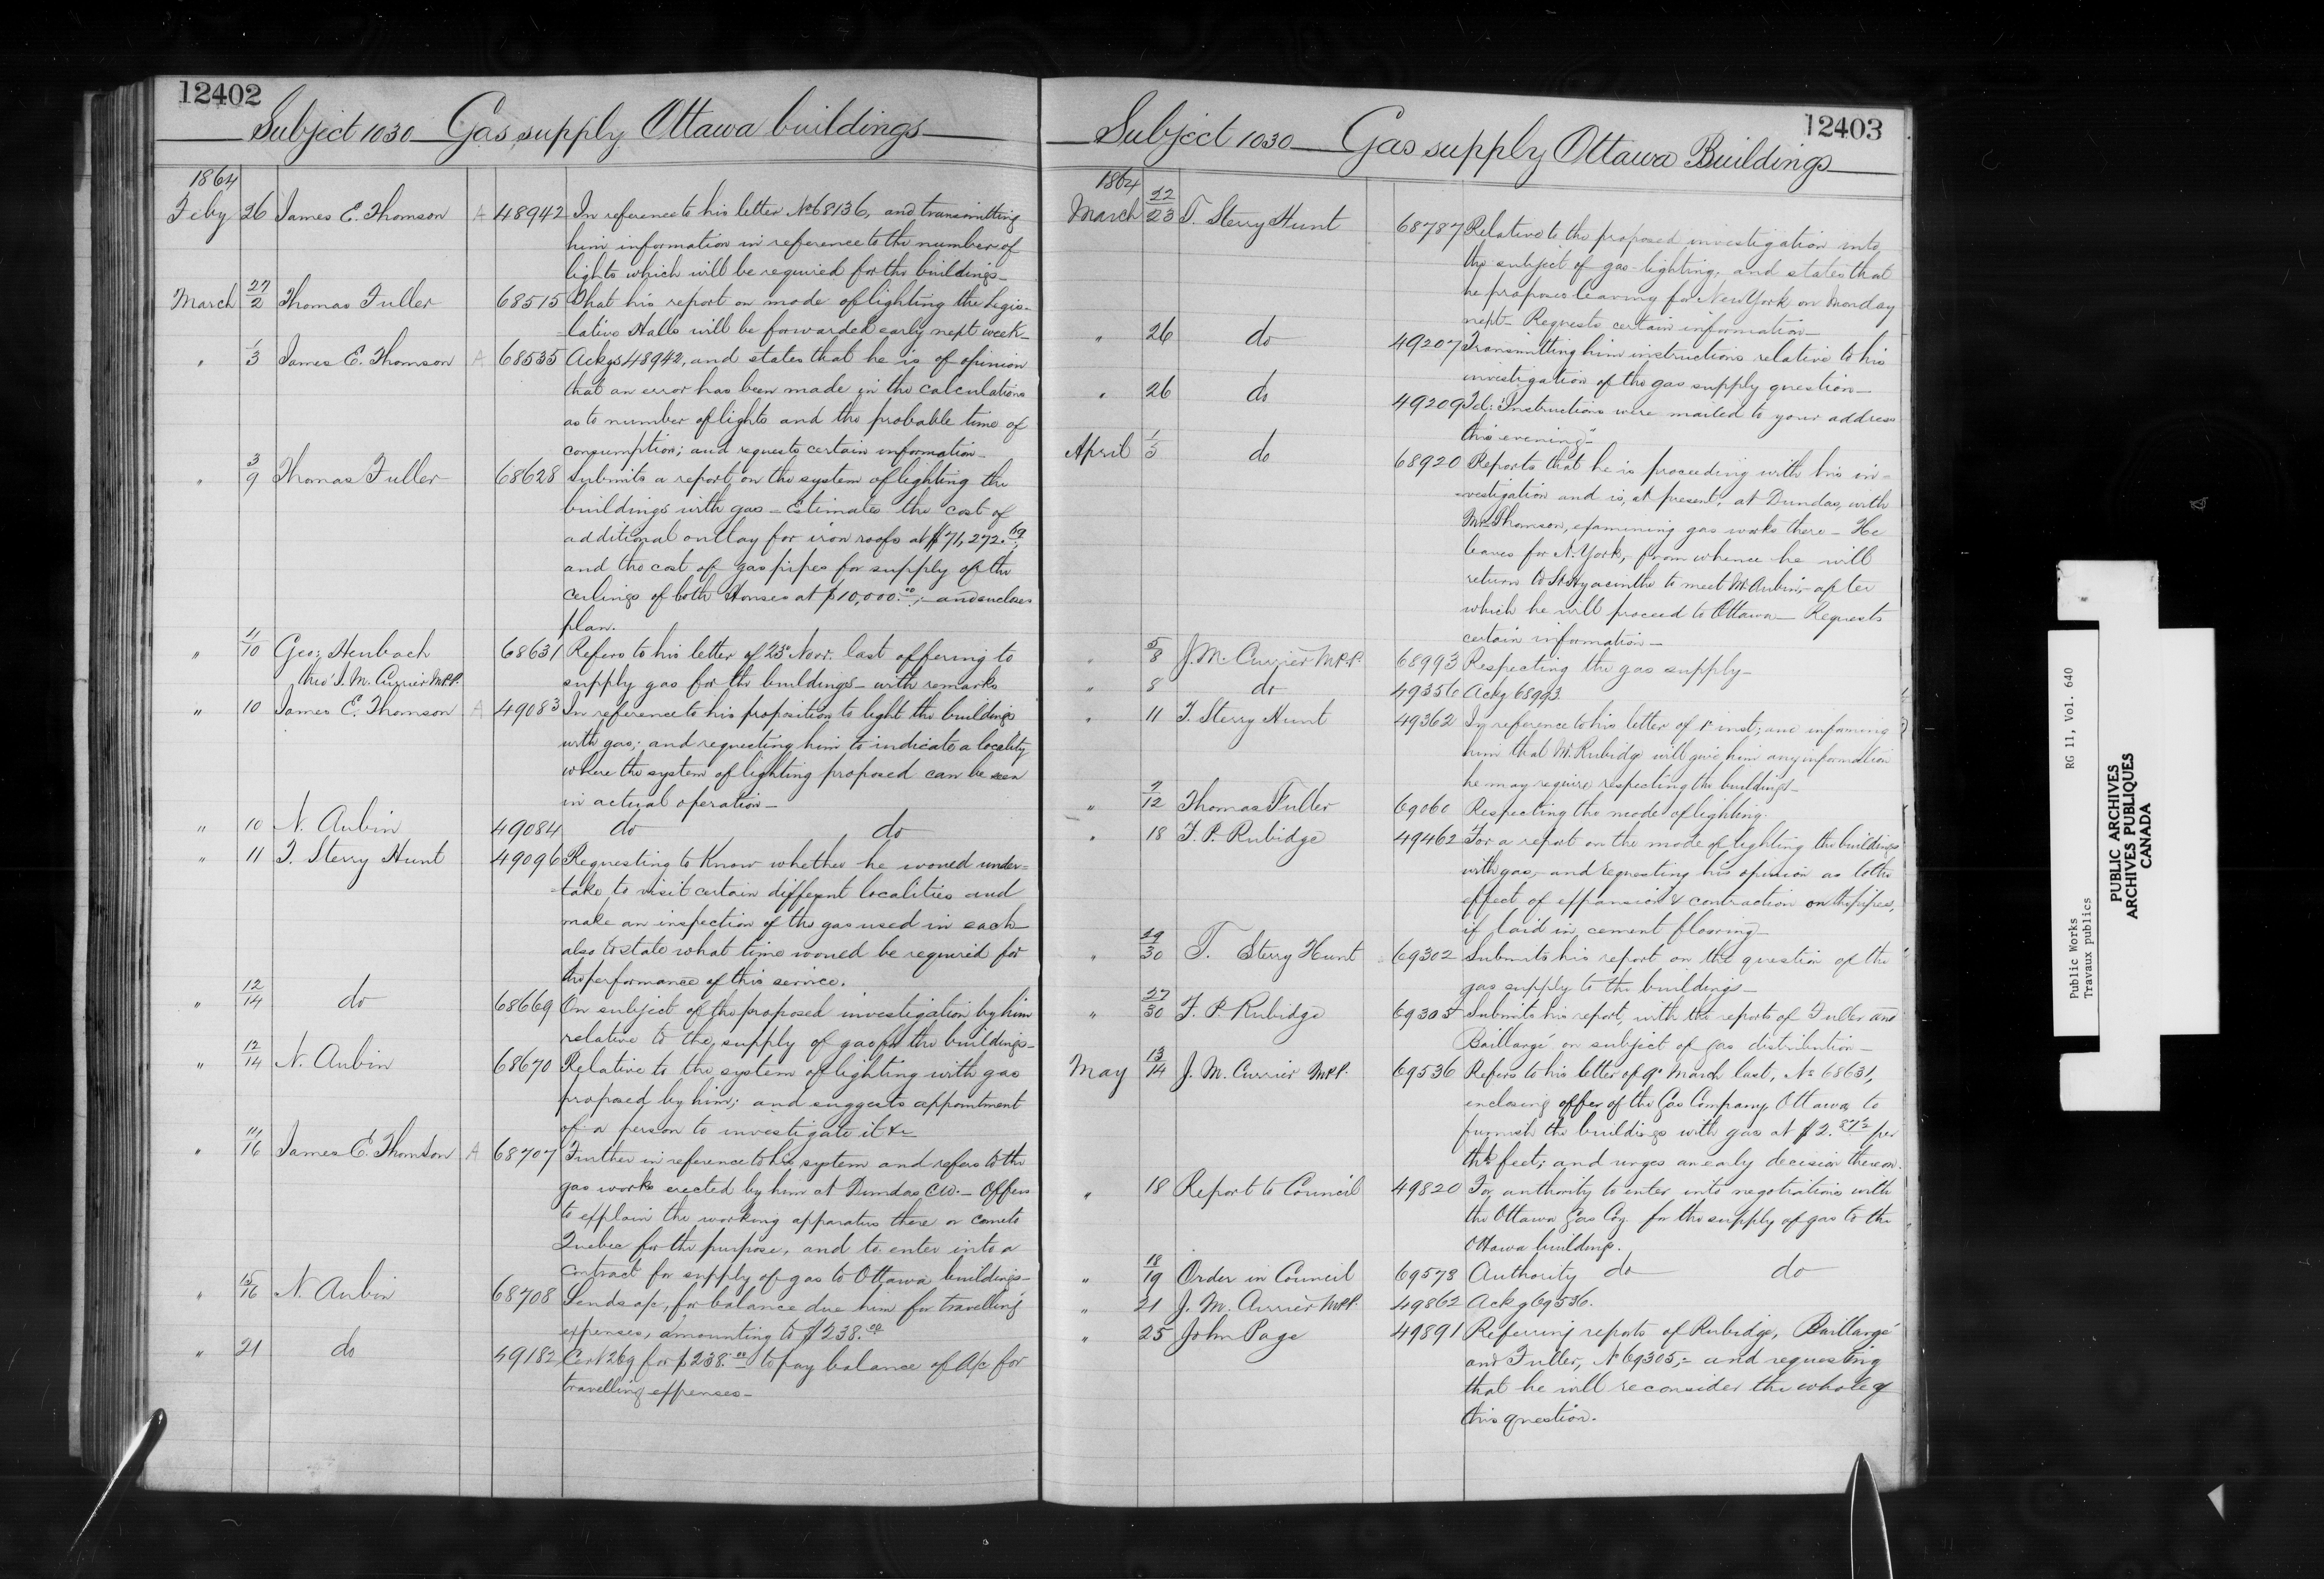 12402
Subject 1030 Gas supply Ottawa buildings
1864
Feby 26 James E. Thomson A 48942 In reference to his letter No 68136, and transmitting
him information in reference to the number of
lights which will be required for the buildings-
March 27/2 Thomas Fuller 68515 That his report on mode of lighting the Legis-
-lative Halls will be forwarded early next week-
" 1/3 James E. Thomson A 68535 Ackgs 48942, and states that he is of opinion
that an error has been made in the calculations
as to number of lights and the probable time of
consumption; and requests certain information-
" 3/9 Thomas Fuller 68628 Submits a report on the system of lighting the
buildings with gas - Estimates the cost of
additional outlay for iron roofs at $71,272.69,
and the cost of gas pipes for supply of the
ceilings of both Houses at $10,000.00;- and encloses
plan.
" Geo: Heubach 68631 Refers to his letter of 23d Novr. last offering to
thro' J. M. Currier M.P.P. supply gas for the buildings - with remarks
" 10 James E. Thomson A 49083 In reference to his proposition to light the buildings
with gas; and requesting him to indicate a locality
where the system of lighting proposed can be seen
in actual operation-
" 10 N. Aubin 49084 do do
" 11 T. Sterry Hunt 49096 Requesting to know whether he would under-
-take to visit certain different localities and
make an inspection of the gas used in each-
also to state what time would be required for
the performance of this service.
" 12/14 do 68669 On subject of the proposed investigation by him
relative to the supply of gas for the buildings-
" 12/14 N. Aubin 68670 Relative to the system of lighting with gas
proposed by him; and suggests appointment
of a person to investigate it &c
" 11/16 James E. Thomson A 68707 Further in reference to his system and refers to the
gas works erected by him at Dundas C.W. - Offers
to explain the working apparatus there or come to
Quebec for the purpose, and to enter into a
contract for supply of gas to Ottawa buildings-
" 15/16 N. Aubin 68708 Sends a/c, for balance due him for travelling
expenses, amounting to $238.00
" 21 do 49182 Cert 269 for $238.00 to pay balance of a/c for
travelling expenses-
12403
Subject 1030 Gas supply Ottawa Buildings
1864
March 22/23 T. Sterry Hunt 68787 Relative to the proposed investigation into
the subject of gas-lighting, and states that
he proposes leaving for New York on Monday
next- Requests certain information-
" 26 do 49207 Transmitting him instructions relative to his
investigation of the gas supply question-
" 26 do 49209 Tel: "Instructions were mailed to your address
this evening"-
April 1/5 do 68920 Reports that he is proceeding with his in-
-vestigation and is, at present, at Dundas, with
Mr Thomson, examining gas works there - He
leaves for N. York, from whence he will
return to St Hyacinthe to meet Mr Aubin,- after
which he will proceed to Ottawa - Requests
certain information-
" 5/8 J. M. Currier M.P.P. 68993 Respecting the gas supply-
" 8 do 49356 Ackg 68993.
" 11 T. Sterry Hunt 49362 In reference to his letter of 1st inst; and informing
him that Mr Rubidge will give him any information
he may require respecting the buildings-
" 7/12 Thomas Fuller 69060 Respecting the mode of lighting.
" 18 F. P. Rubidge 49462 For a report on the mode of lighting the buildings
with gas,- and requesting his opinion as to the
effect of expansion & contraction on the pipes,
if laid in cement flooring-
" 29/30 T. Sterry Hunt 69302 Submits his report on the question of the
gas supply to the buildings-
" 27/30 F. P. Rubidge 69305 Submits his report, with the reports of Fuller and
Baillargé on subject of gas distribution-
May 13/14 J. M. Currier M.P.P. 69536 Refers to his letter of 9th March last, No 68631,
enclosing offer of the Gas Company Ottawa to
furnish the buildings with gas at $2. per
feet; and urges an early decision thereon.
" 18 Report to Council 49820 For authority to enter into negotiations with
the Ottawa Gas Coy for the supply of gas to the
Ottawa buildings.
" 18/19 Order in Council 69578 Authority do do
" 21 J. M. Currier M.P.P. 49862 Ackg 69536.
" 25 John Page 49891 Referring reports of Rubidge, Baillargé
and Fuller, No 69305,- and requesting
that he will reconsider the whole of
this question.
PUBLIC ARCHIVES
ARCHIVES PUBLIQUES
CANADA
Public Works RG 11, Vol. 640
Travaux publics